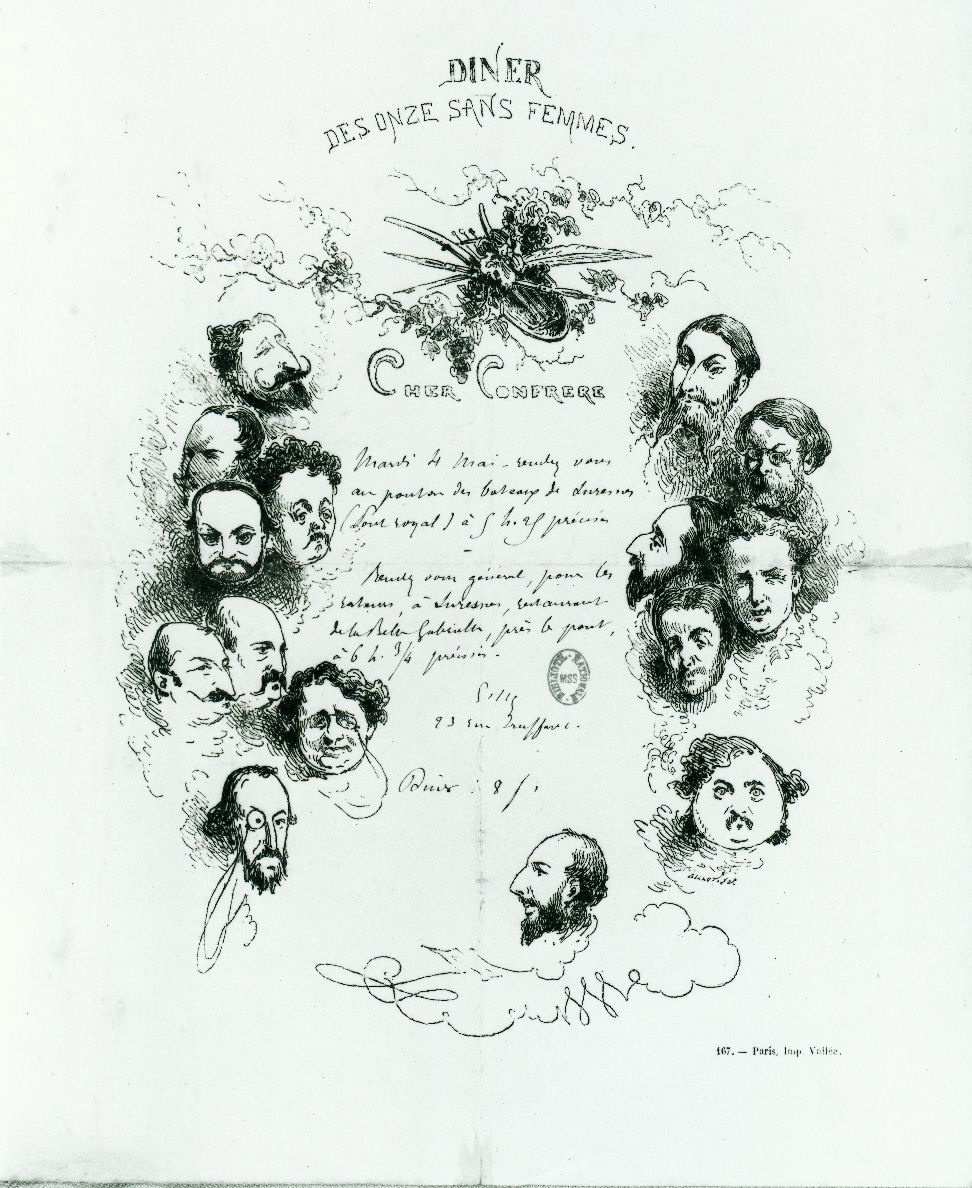 DINER
DES ONZE SANS FEMMES.
CHER CONFRERE
Mardi 4 Mai - rendez vous
au ponton des bateaux de Suresnes
(Pont royal) à 5 h. 25 précises
Rendez vous général, pour les
à Suresnes, restaurant
de la Belle Gabrielle, près le pont,
à 6 h. 3/4 précises.
23 rue Truffaut.
8
BIBLIOTH. NATIONALE
MSS
167. — Paris, Imp. Vallée.